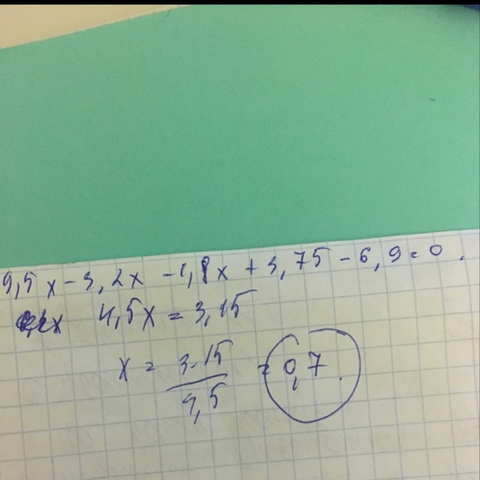 9,5x - 3,2x - 1,8x + 3,75 - 6,9 = 0.
4,5x = 3,15
x = 3.15 / 4,5 = 0,7.